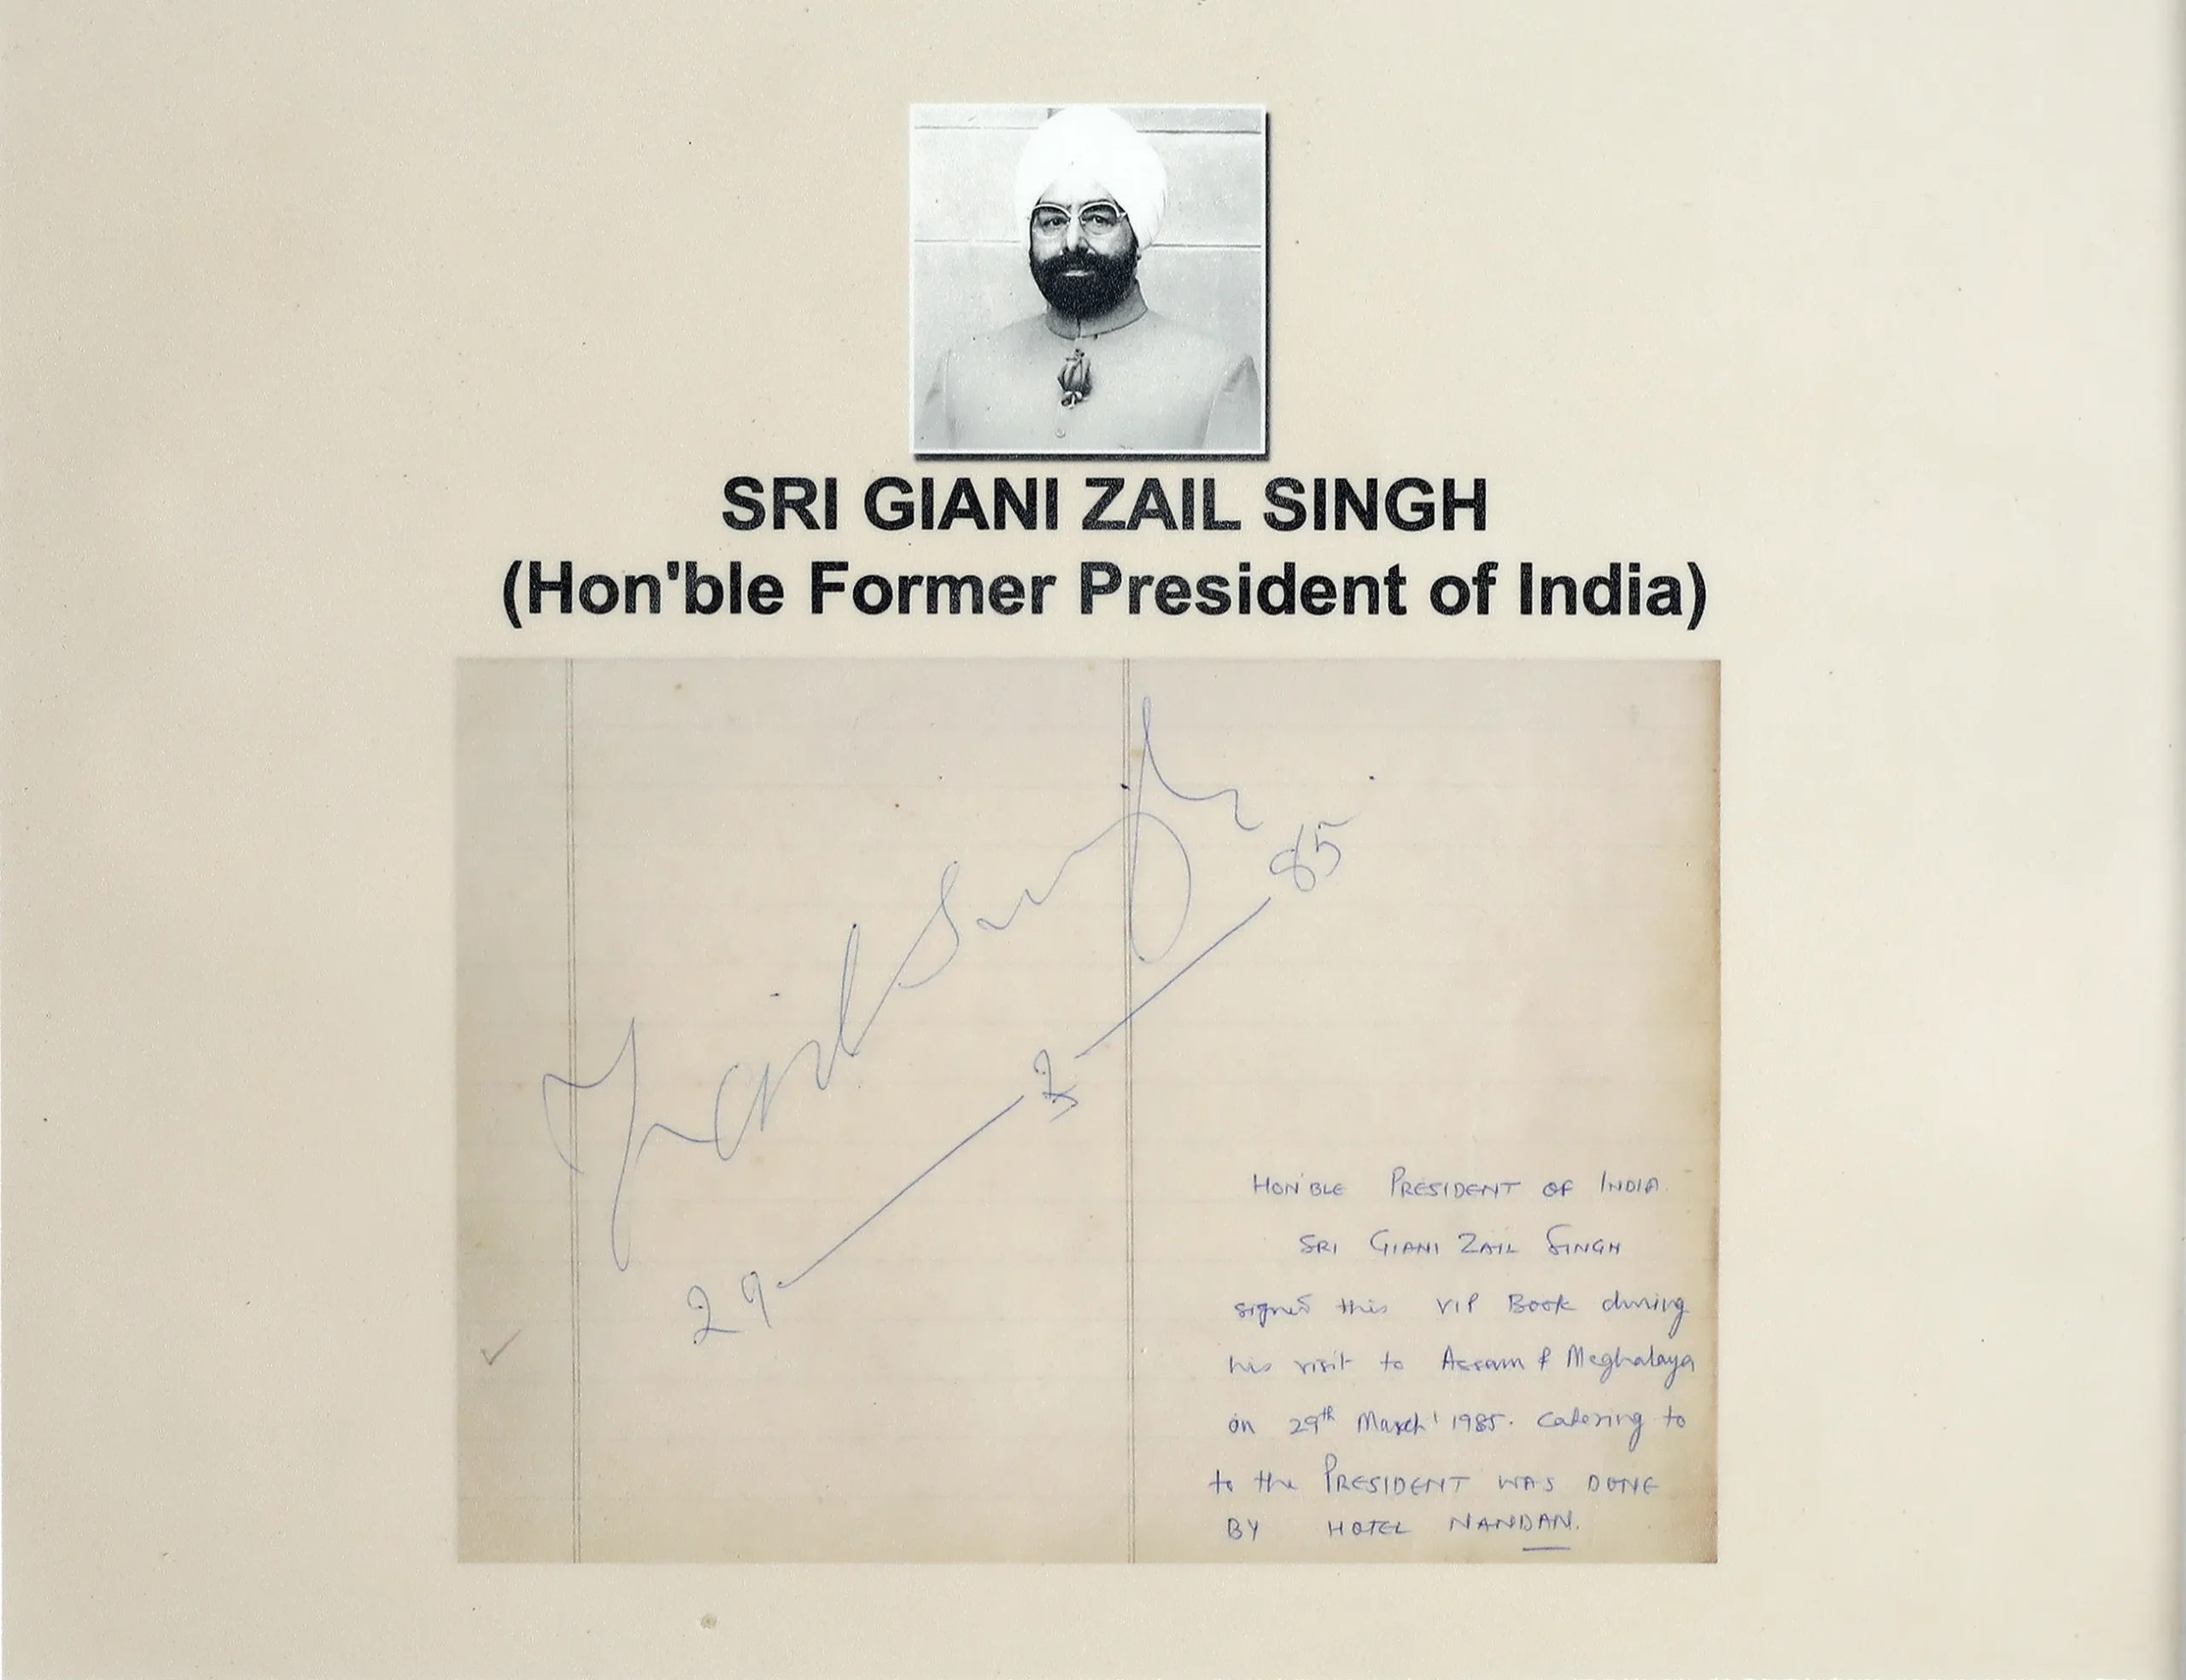 SRI GIANI ZAIL SINGH
(Hon'ble Former President of India)
Zail Singh
29-3-85
HON'BLE PRESIDENT OF INDIA.
SRI GIANI ZAIL SINGH
signed this VIP Book during
his visit to Assam & Meghalaya
on 29th March' 1985. Catering to
to the PRESIDENT WAS DONE
BY HOTEL NANDAN.